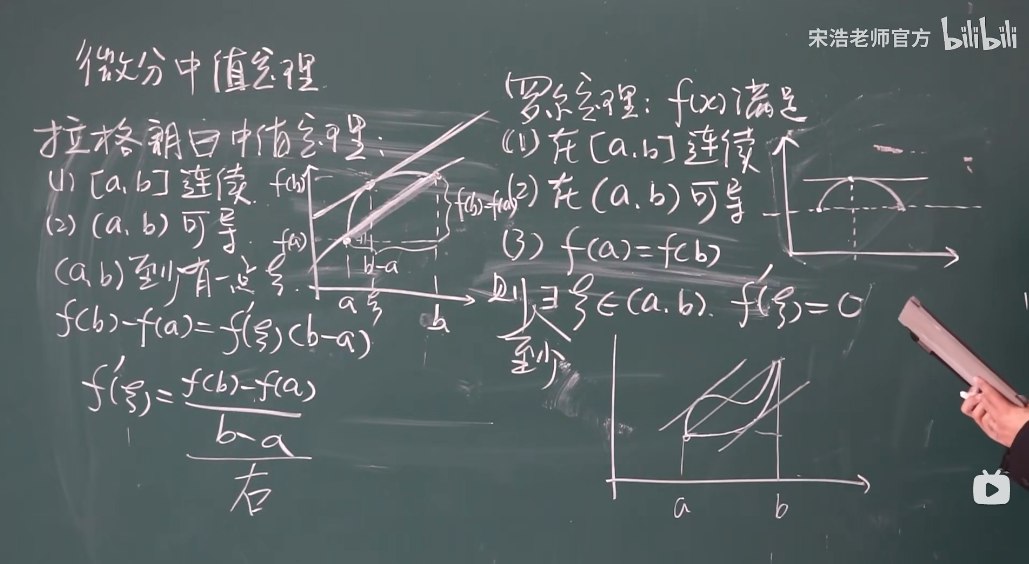 宋浩老师官方 bilibili
微分中值定理
拉格朗日中值定理:
(1) [a,b] 连续.
(2) (a,b) 可导.
(a,b) 至少有一点 ξ.
f(b)-f(a)=f'(ξ)(b-a)
f'(ξ)=\frac{f(b)-f(a)}{b-a}
右
f(b)
f(a)
f(b)-f(a)
b-a
a ξ b
罗尔定理: f(x)满足
(1) 在[a.b]连续
(2) 在(a,b)可导
(3) f(a)=f(b)
则∃ξ∈(a.b). f'(ξ)=0
至少
a b